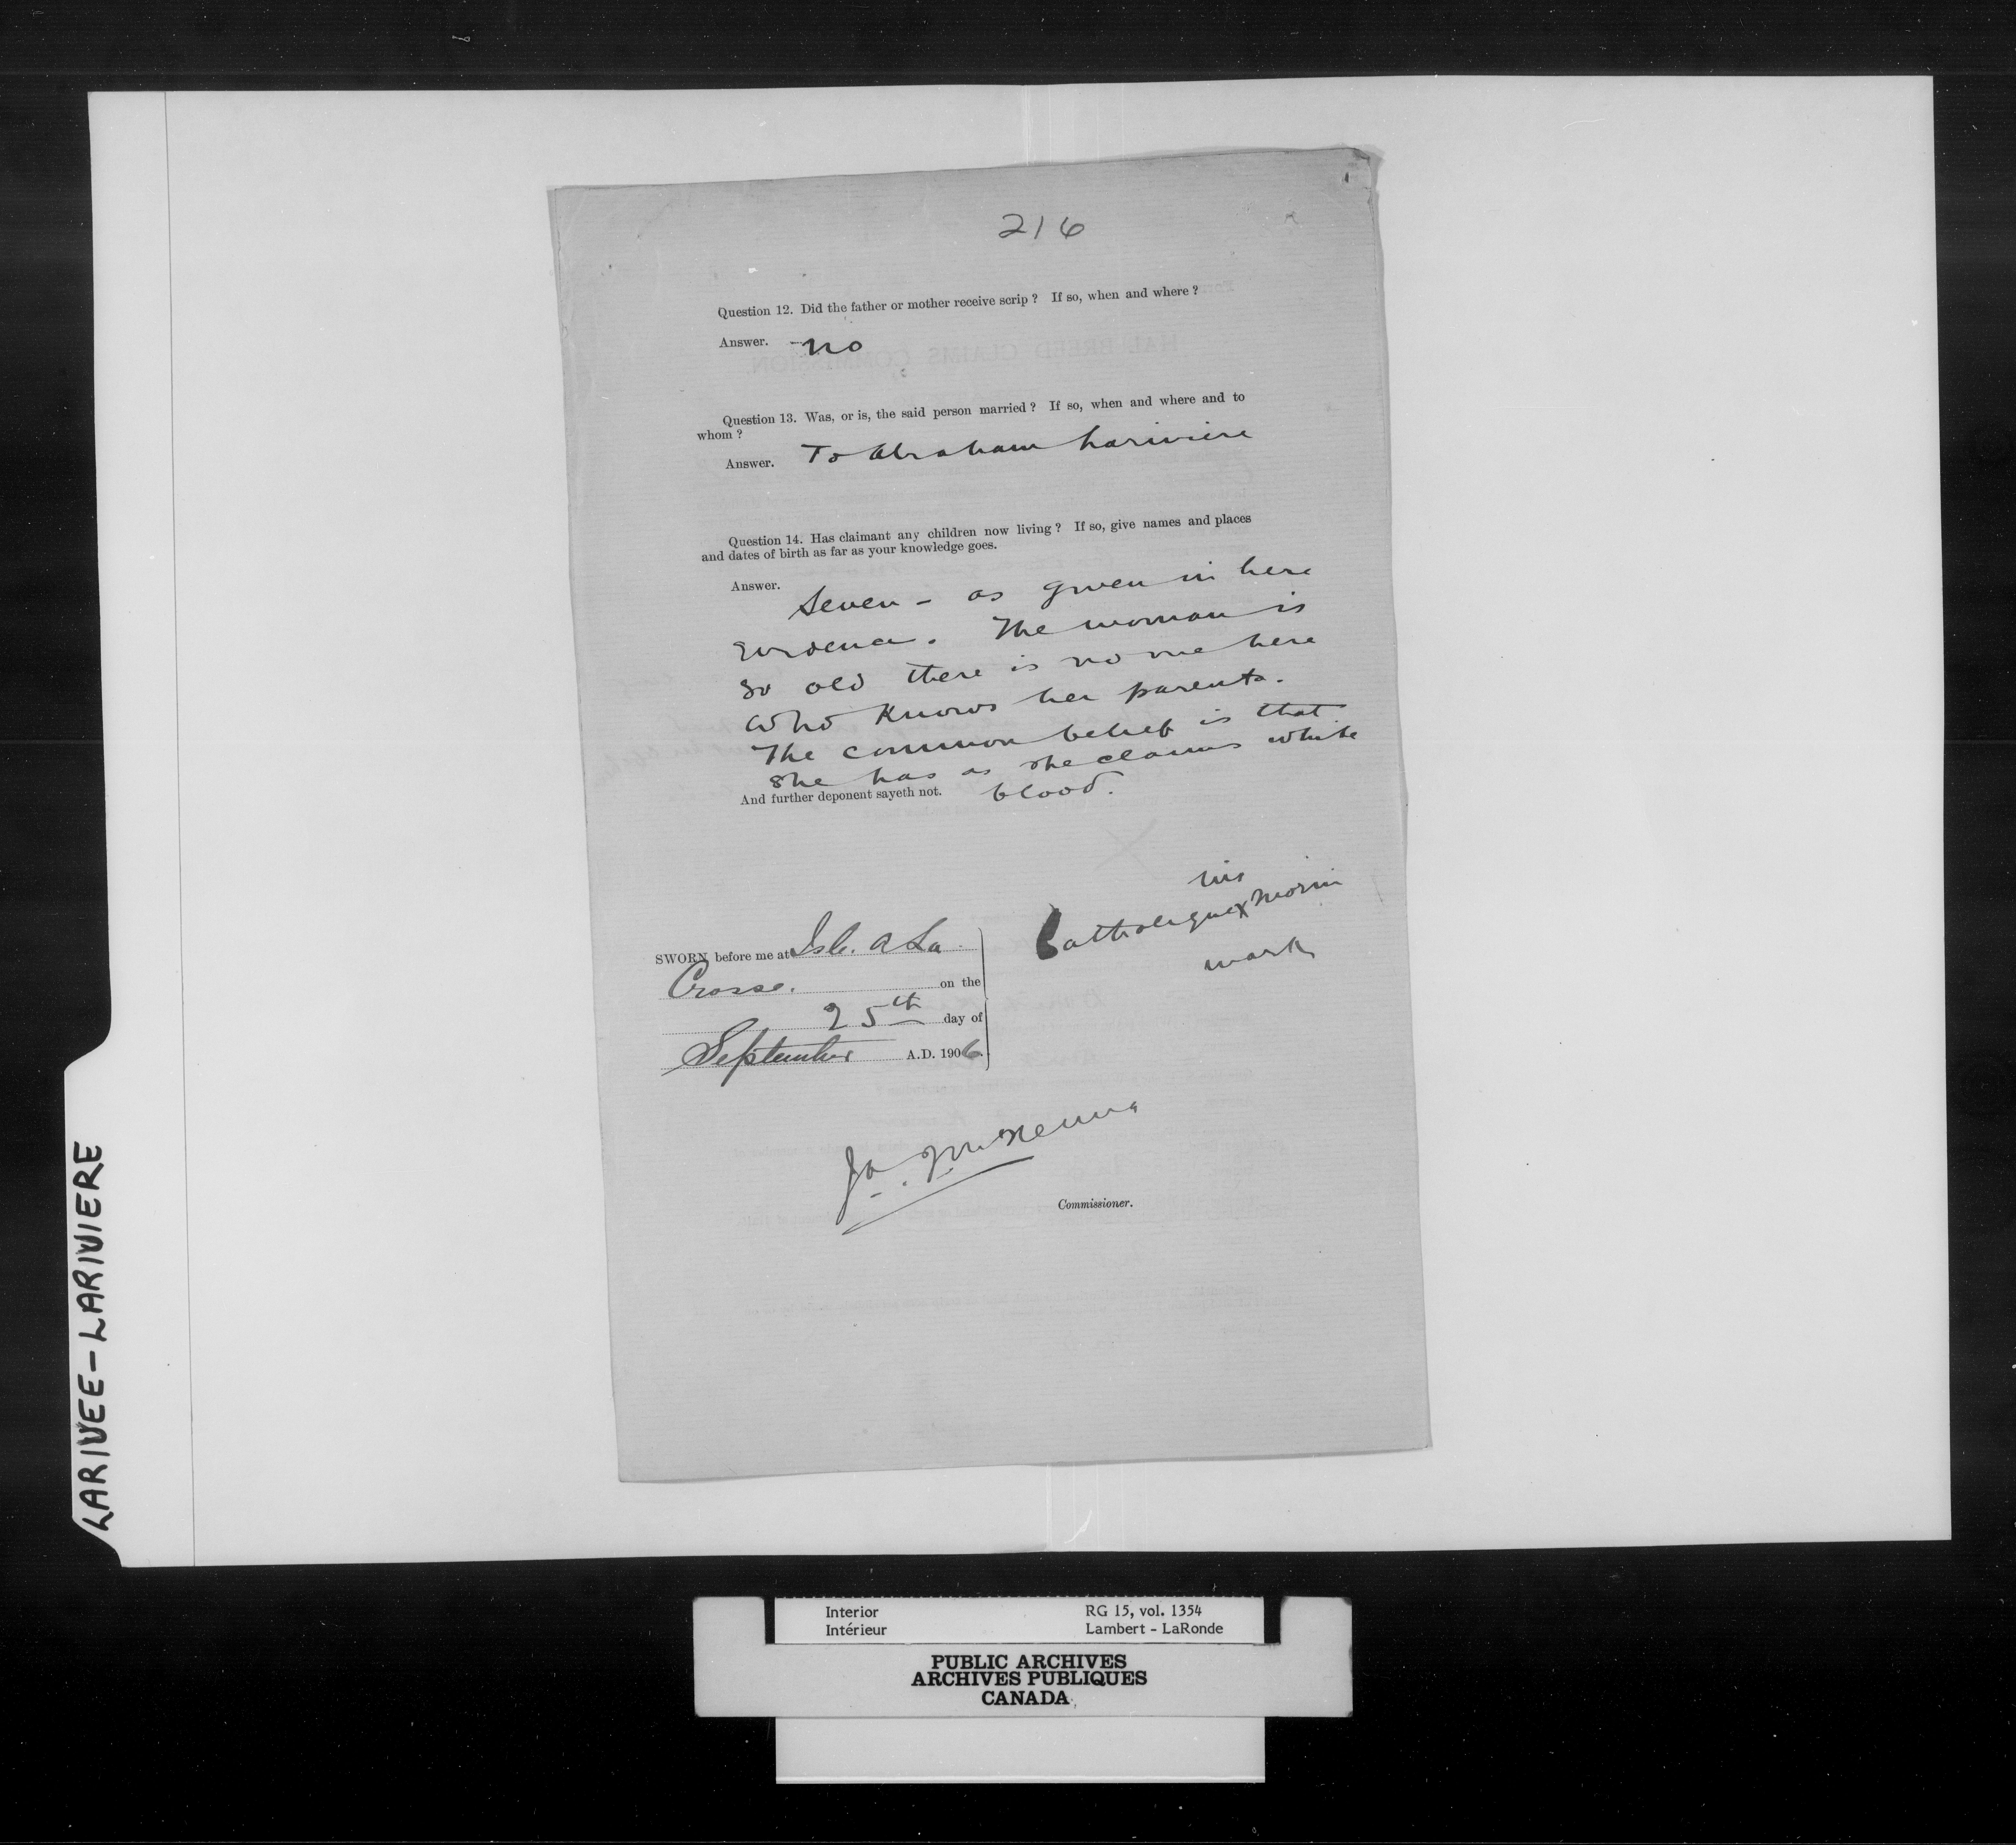 216
Question 12. Did the father or mother receive scrip ? If so, when and where ?
Answer. - no
Question 13. Was, or is, the said person married ? If so, when and where and to
whom ?
Answer. To Abraham Lariviere
Question 14. Has claimant any children now living ? If so, give names and places
and dates of birth as far as your knowledge goes.
Answer. Seven - as given in here
evidence. The woman is
so old there is no one here
who knows her parents.
The common belief is that
she has as she claims white
And further deponent sayeth not. blood.
his
Catholique x Morin
mark
SWORN before me at Isle. a La
Crosse. on the
25th day of
September A.D. 1906.
Ja. McKenna
Commissioner.
LARIVEE-LARIVIERE
Interior RG 15, vol. 1354
Intérieur Lambert - LaRonde
PUBLIC ARCHIVES
ARCHIVES PUBLIQUES
CANADA